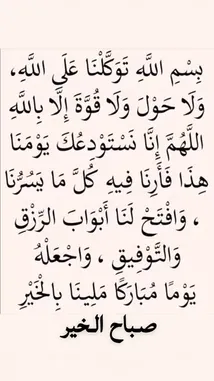 بِسْمِ اللَّهِ تَوَكَّلْنَا عَلَى اللَّهِ،
وَلَا حَوْلَ وَلَا قُوَّةَ إِلَّا بِاللَّهِ
اللَّهُمَّ إِنَّا نَسْتَوْدِعُكَ يَوْمَنَا
هٰذَا فَأَرِنَا فِيهِ كُلَّ مَا يَسُرُّنَا
، وَافْتَحْ لَنَا أَبْوَابَ الرِّزْقِ
وَالتَّوْفِيقِ ، وَاجْعَلْهُ
يَوْمًا مُبَارَكًا مَلِينَا بِالْخَيْرِ
صباح الخير